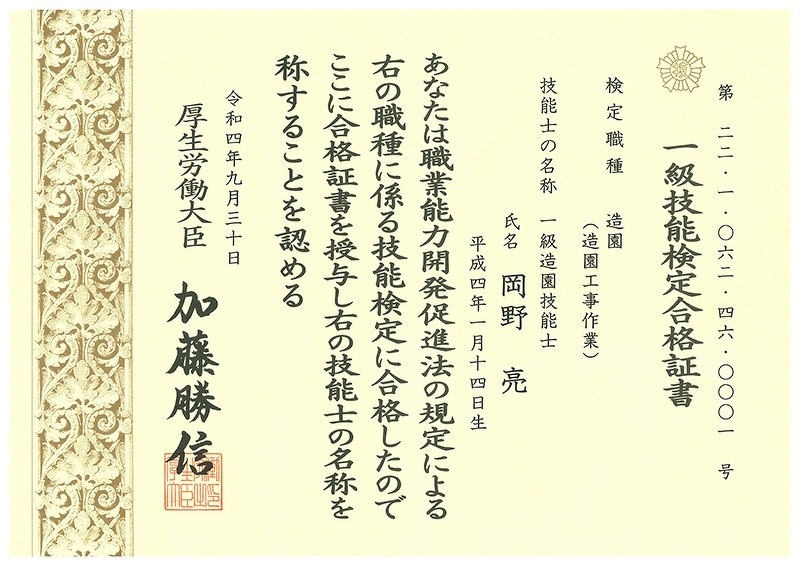 第 二二・一・〇六二・四六・〇〇〇一 号
一級技能検定合格証書
検定職種 造園
(造園工事作業)
技能士の名称 一級造園技能士
氏名 岡野 亮
平成四年一月十四日生
あなたは職業能力開発促進法の規定による
右の職種に係る技能検定に合格したので
ここに合格証書を授与し右の技能士の名称を
称することを認める
令和四年九月三十日
厚生労働大臣 加藤勝信